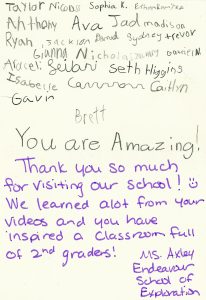 Taylor Nicolas Sophia K.
Anthony Ava Jad madison
Ryan Jackson Sydney trevor
Gianna Nichola
Araceli Seth Higgins
Isabelle Cameron Caitlyn
Gavin
Brett
You are Amazing!
Thank you so much
for visiting our school! :)
We learned alot from your
videos and you have
inspired a classroom full
of 2nd graders!
Ms. Axley
Endeavour
School of
Exploration